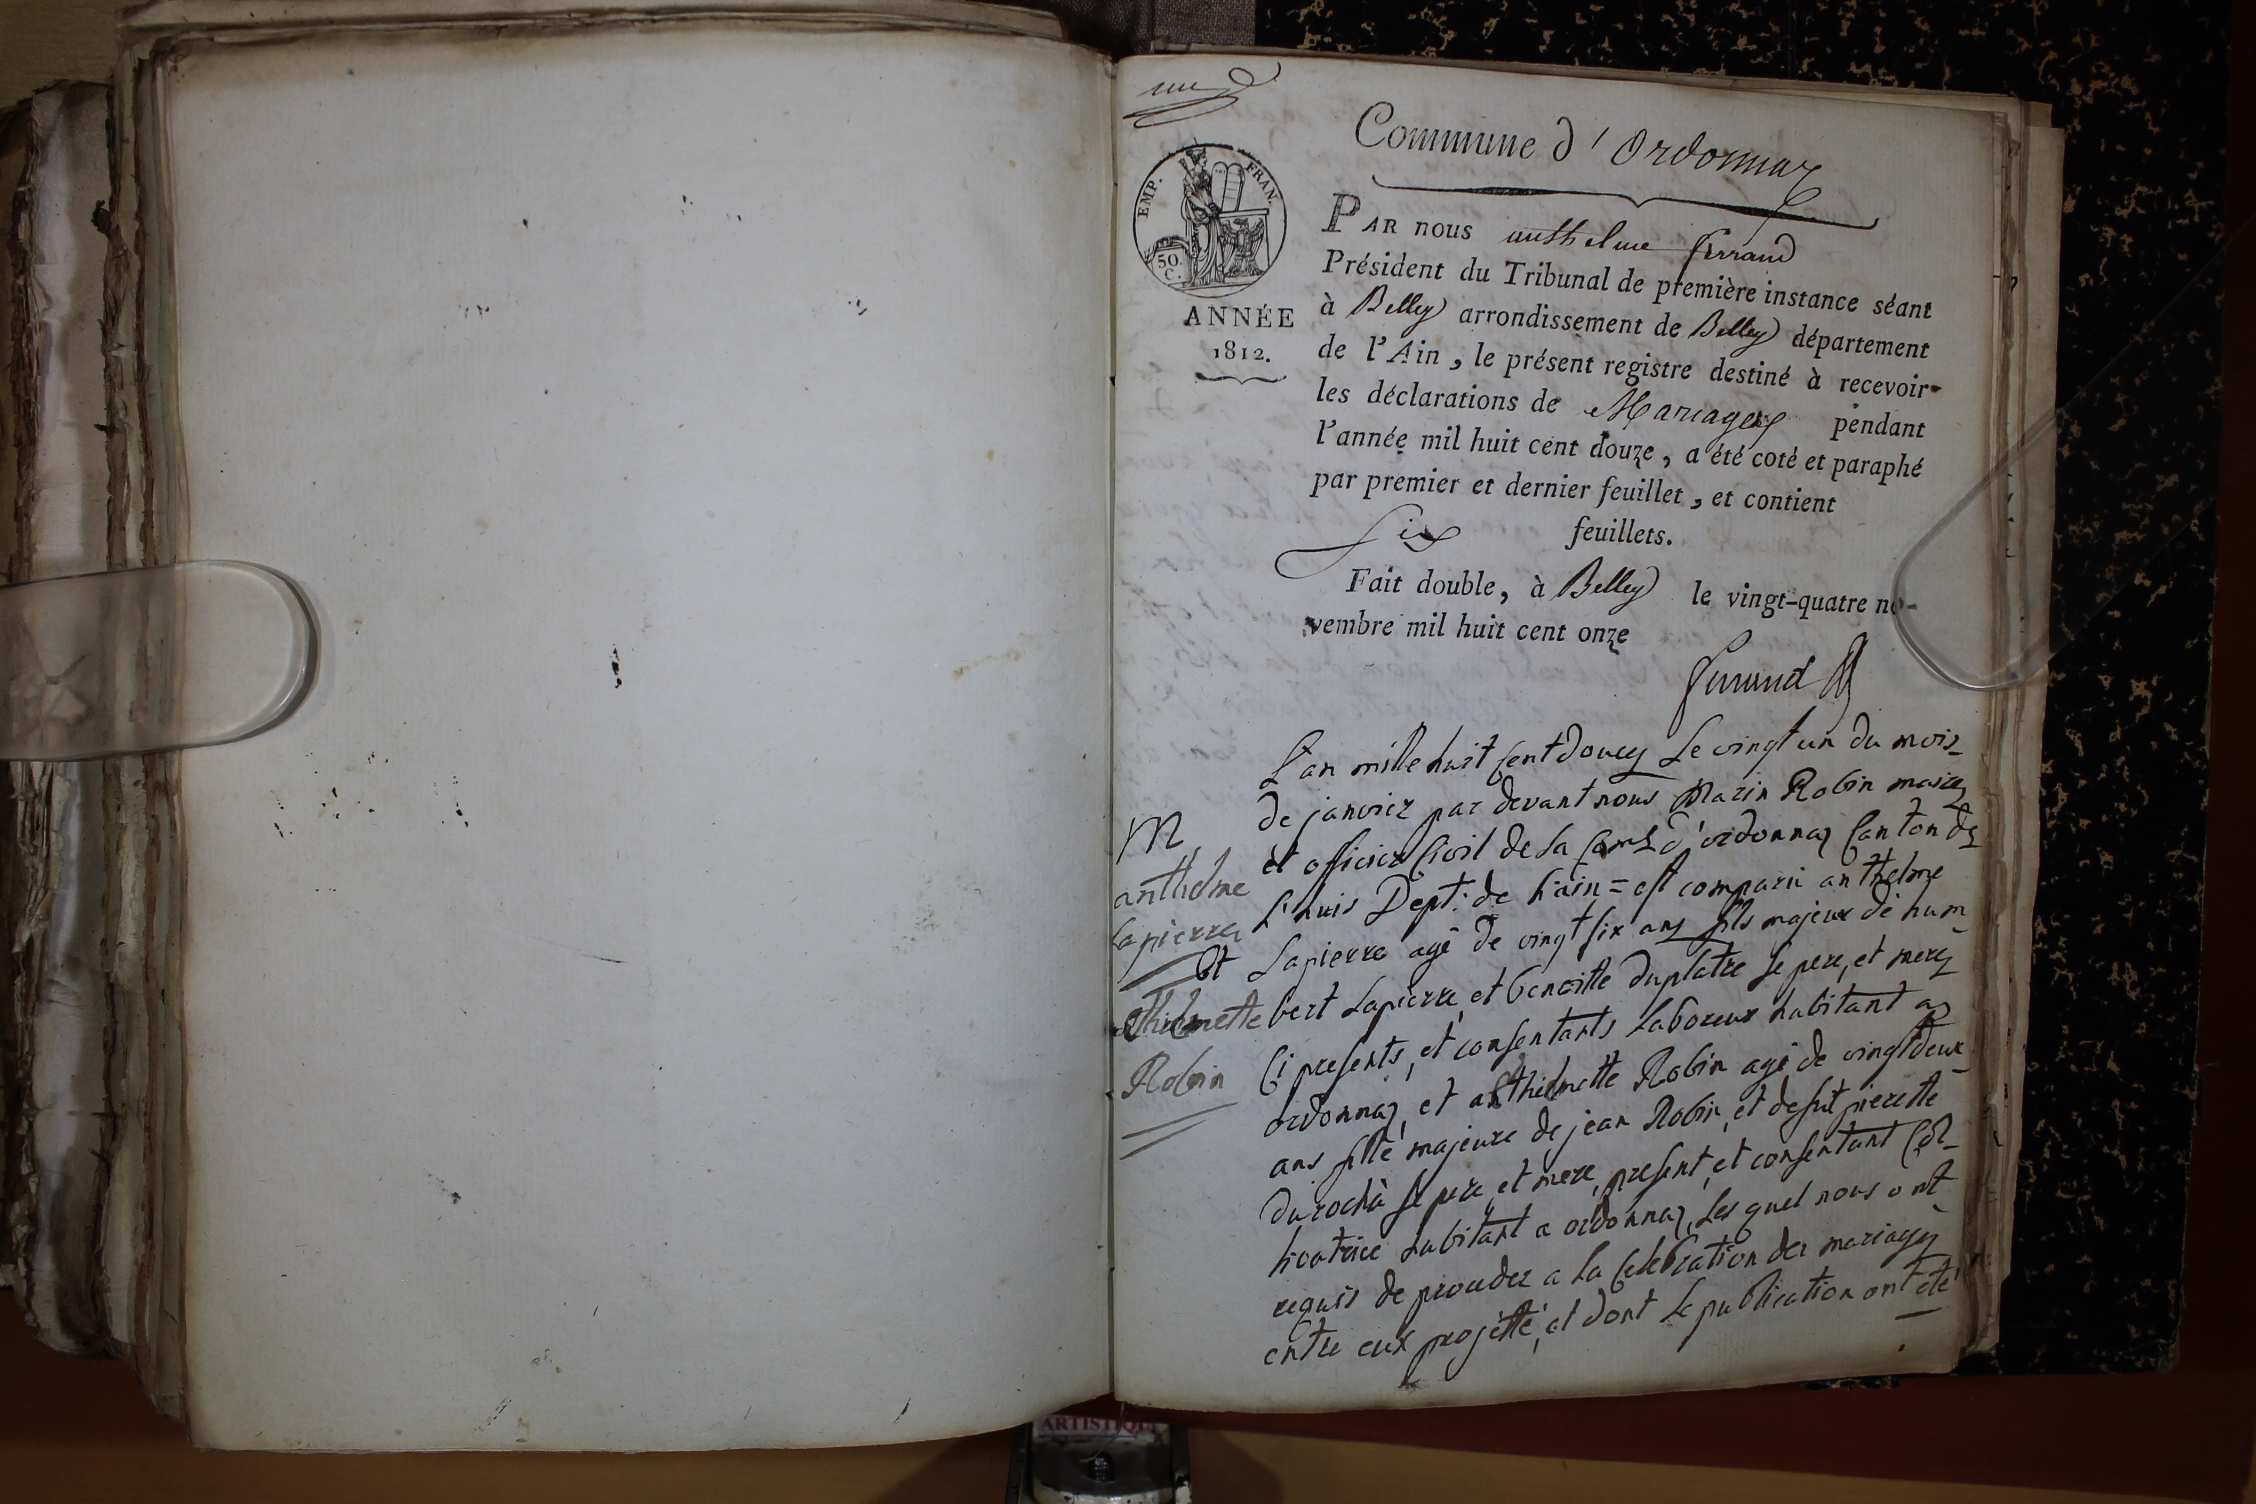 une
Commune d'Ordonnaz
EMP. FRAN.
50.
C.
ANNÉE
1812.
PAR nous anthelme ferrand
Président du Tribunal de première instance séant
à Belley arrondissement de Belley département
de l'Ain, le présent registre destiné à recevoir
les déclarations de Mariages pendant
l'année mil huit cent douze, a été coté et paraphé
par premier et dernier feuillet, et contient
six feuillets.
Fait double, à Belley le vingt-quatre no-
vembre mil huit cent onze
ferrand
M
anthelme
Lapierre
et
Robin
L'an mille huit cent douze Le vingt un du mois
de janvier par devant nous Marin Robin maire
et officier civil de la Com.e d'ordonnaz Canton de
L'huis Dept. de L'ain = est comparu anthelme
Lapierre agé de vingt six ans fils majeur de hum
bert Lapierre, et benoitte duplatre se pere, et mere
Ci presents, et consentants Laboreur habitant a
ordonnaz, et anthelmette Robin agé de vingt deux
ans fille majeure de jean Robin, et defut pierette
durochà se pere, et mere, present, et consentant Col-
tivatrice habitant a ordonnaz, Les quel nous ont
requis de proceder a la Celebration der mariage
entre eux projetté, et dont Le publication ont eté
ARTISTIQUE